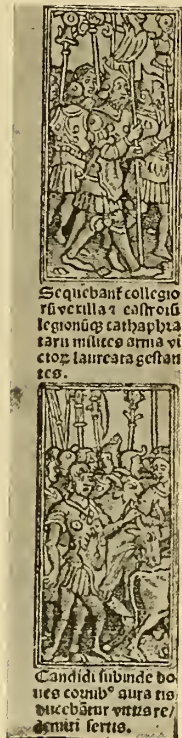 Sequebant᷒ collegio
rū vexilla ⁊ castroꝝ
legionūq; cathaphra
tarū milites arma vi
ctoꝝ laureata gestan
tes.
Candidi subinde bo
ues cornib⁹ aura tis
ducebātur vittis re/
dimiti sertis.